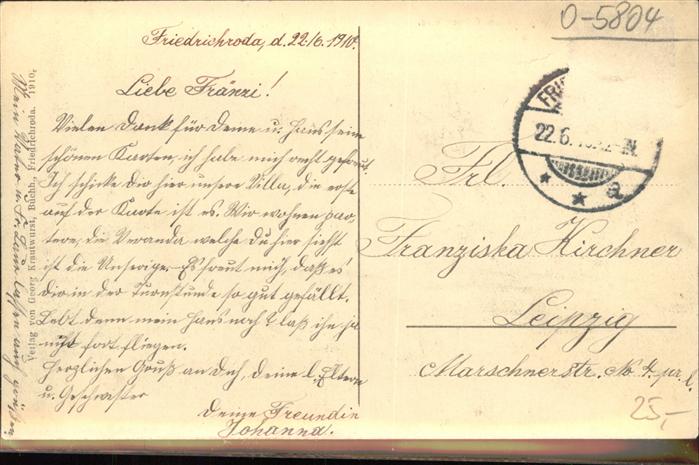 O-5804
Friedrichroda, d. 22/6. 1910.
Liebe Fränzi!
Vielen Dank für Deine u. Hans seine
schönen Karten, ich habe mich recht gefreut.
Ich schicke Dir hier unsere Villa, die erste
auf der Karte ist es. Wir wohnen par-
terre, die Veranda welche Du hier siehst
ist die Unsrige. Es freut mich, daß es
Dir in der Turnstunde so gut gefällt.
Lebt denn mein Hans noch? Laß ihn ja
nicht fort fliegen.
Herzlichen Gruß an Dich, Deine l. Eltern
u. Geschwister
Deine Freundin
Johanna.
Mein Vater u. lassen auch grüßen
Verlag von Georg Krautwurst, Buchh., Friedrichroda. 1910.
FRI
22.6.
a
Frl.
Franziska Kirchner
Leipzig
Marschnerstr. No 4. pr. l.
25,-